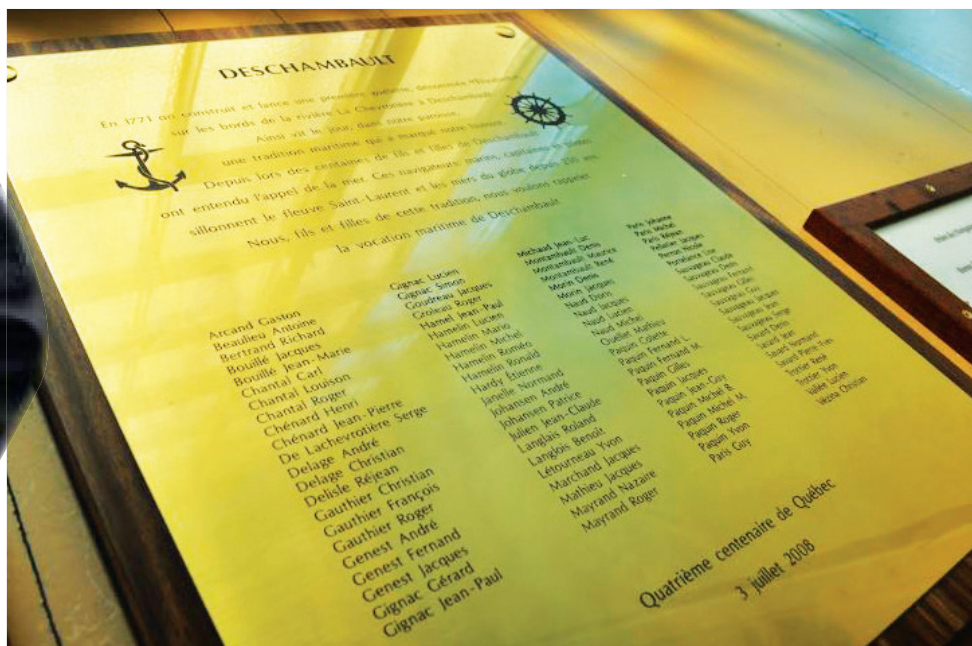 DESCHAMBAULT
En 1771 on construit et lance une première goélette, dénommée
sur les bords de la rivière La Chevrotière à Deschambault.
Ainsi vit le jour, dans notre paroisse,
une tradition maritime qui a marqué notre histoire.
Depuis lors des centaines de fils et filles de Deschambault
ont entendu l'appel de la mer. Ces navigateurs, marins, capitaines et pilotes
sillonnent le fleuve Saint-Laurent et les mers du globe depuis 250 ans.
Nous, fils et filles de cette tradition, nous voulons rappeler
la vocation maritime de Deschambault
Arcand Gaston
Beaulieu Antoine
Bertrand Richard
Bouillé Jacques
Bouillé Jean-Marie
Chantal Carl
Chantal Louison
Chantal Roger
Chénard Henri
Chénard Jean-Pierre
De Lachevrotière Serge
Delage André
Delage Christian
Delisle Réjean
Gauthier Christian
Gauthier François
Gauthier Roger
Genest André
Genest Fernand
Genest Jacques
Gignac Gérard
Gignac Jean-Paul
Gignac Lucien
Gignac Simon
Goudreau Jacques
Groleau Roger
Hamel Jean-Paul
Hamelin Lucien
Hamelin Mario
Hamelin Michel
Hamelin Roméo
Hamelin Ronald
Hardy Étienne
Janelle Normand
Johansen André
Johansen Patrice
Julien Jean-Claude
Langlais Roland
Langlois Benoît
Létourneau Yvon
Marchand Jacques
Mathieu Jacques
Mayrand Nazaire
Mayrand Roger
Michaud Jean-Luc
Montambault Denis
Montambault Maurice
Montambault René
Morin Denis
Morin Jacques
Naud Doris
Naud Jacques
Naud Lucien
Naud Michel
Ouellet Mathieu
Paquin Colette
Paquin Fernand L.
Paquin Fernand M.
Paquin Gilles
Paquin Jacques
Paquin Jean-Guy
Paquin Michel B.
Paquin Michel M.
Paquin Roger
Paquin Yvon
Paris Guy
Paris Johanne
Paris Michel
Paris Réjean
Pelletier Jacques
Perron Nicole
Porcelance Luc
Sauvageau Claude
Sauvageau Denis
Sauvageau Fernand
Sauvageau Gilles
Sauvageau Guy
Sauvageau Jacques
Sauvageau Serge
Savard Denis
Savard Jean
Savard Normand
Savard Pierre-Yves
Trottier René
Trottier Yvon
Vallée Lucien
Vézina Christian
Quatrième centenaire de Québec
3 juillet 2008